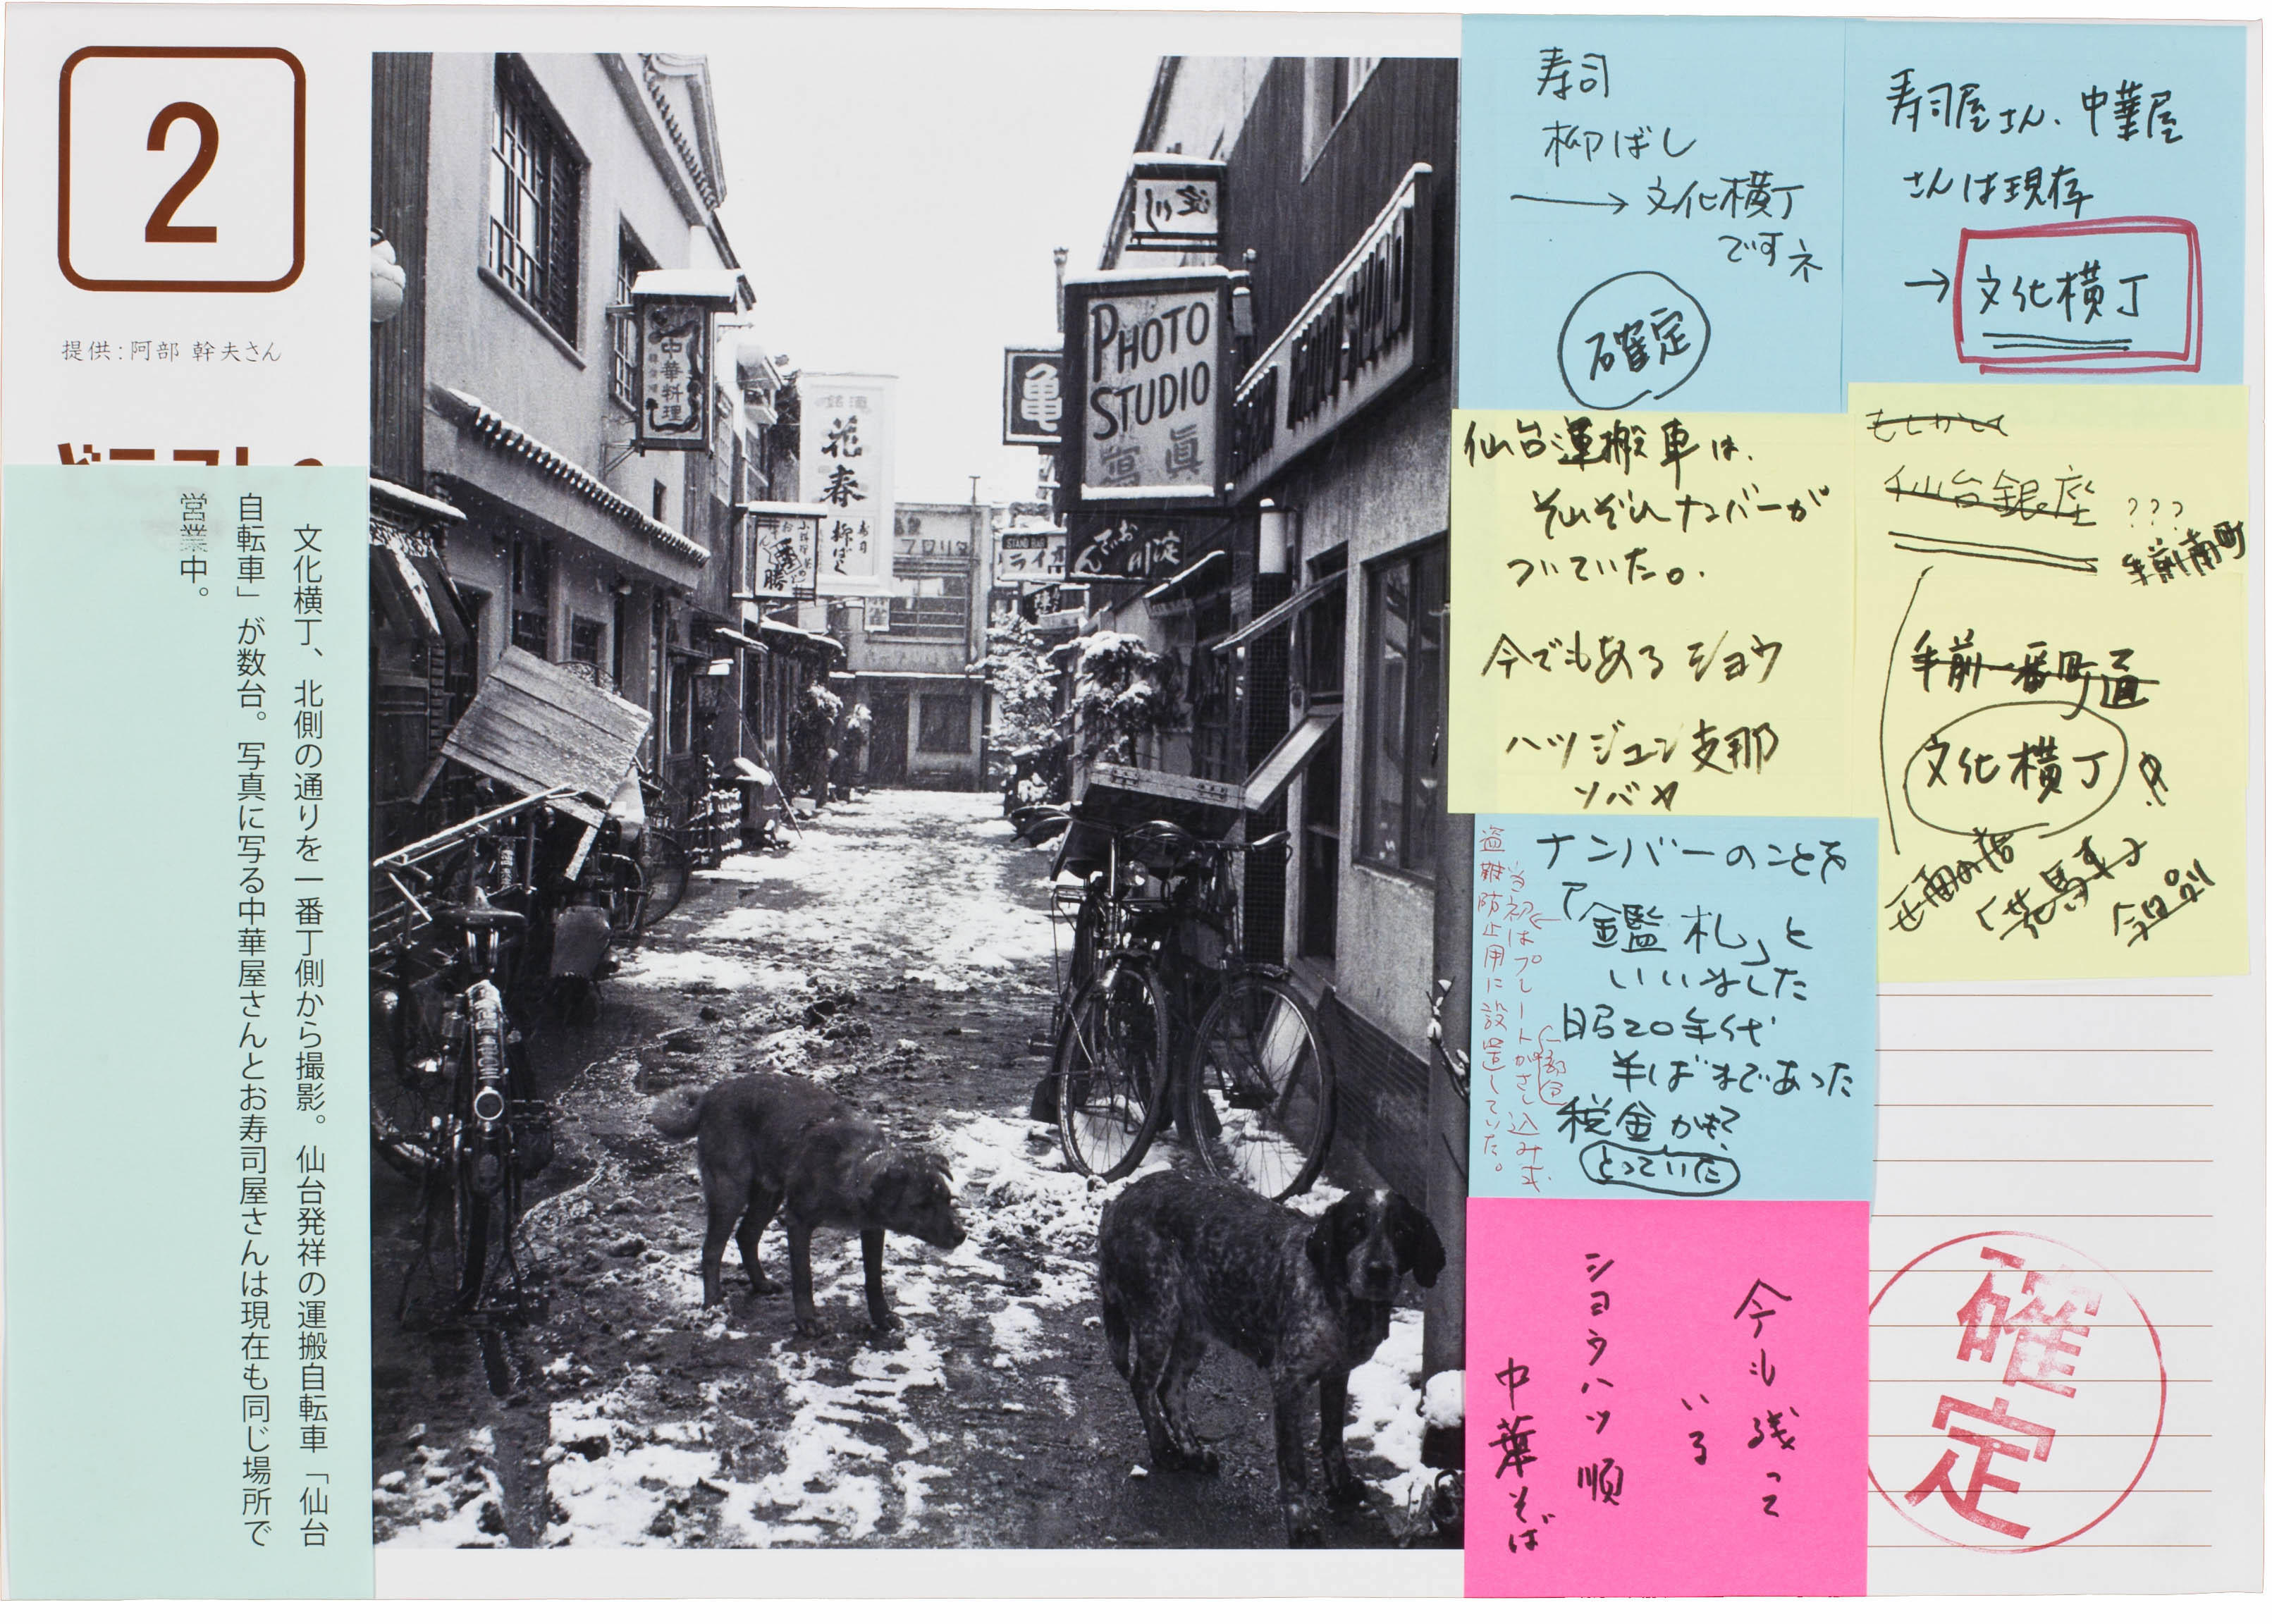 2
提供：阿部 幹夫さん
文化横丁、北側の通りを一番丁側から撮影。仙台発祥の運搬自転車「仙台
自転車」が数台。写真に写る中華屋さんとお寿司屋さんは現在も同じ場所で
営業中。
中華料理
花春
寿司
柳ばし
亀
PHOTO
STUDIO
寫真
淀川
おでん
STAND BAR
フロリダ
寿司
柳ばし
→文化横丁
ですネ
確定
寿司屋さん、中華屋
さんは現存
→文化横丁
仙台運搬車は、
それぞれナンバーが
ついていた。
今でもある ショウ
ハツジュン支那
ソバヤ
もしかして
仙台銀座
???
手前南町
手前一番町通
文化横丁
ナンバーのことを
「鑑札」と
いいました
昭20年代
半ばまであった
税金かも?
とっていた
当初はプレートがさし込み式
盗難防止用に設置していた。
今も残って
いる
ショウハツ順
中華そば
確定